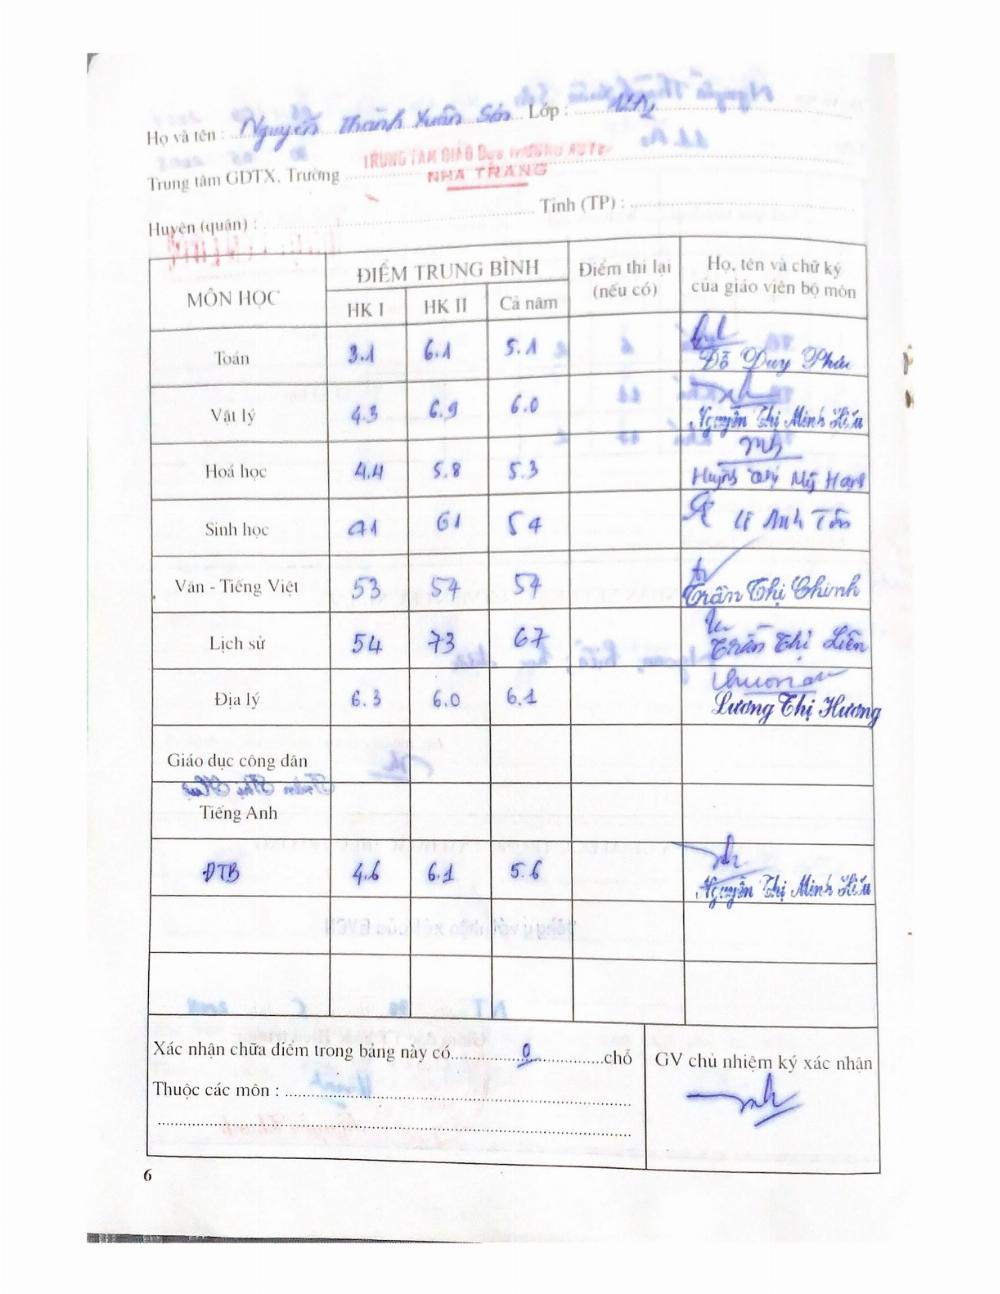 Họ và tên : Nguyễn Thành Xuân Sơn Lớp : 12A2
Trung tâm GDTX, Trường TRUNG TÂM GIÁO DỤC THƯỜNG XUYÊN
NHA TRANG
Huyện (quận) : Tỉnh (TP) :
MÔN HỌC ĐIỂM TRUNG BÌNH Điểm thi lại (nếu có) Họ, tên và chữ ký của giáo viên bộ môn
HK I HK II Cả năm
Toán 3.1 6.1 5.1 Đỗ Duy
Vật lý 4.3 6.9 6.0 Nguyễn Thị Minh Hiếu
Hoá học 4.4 5.8 5.3 Huỳnh Mỹ
Sinh học 41 61 54 Lê Anh
Văn - Tiếng Việt 53 57 57 Trần Thị Chinh
Lịch sử 54 73 67 Trần Thị Liên
Địa lý 6.3 6.0 6.1 Lương Thị Hương
Giáo dục công dân
Tiếng Anh
ĐTB 4.6 6.1 5.6 Nguyễn Thị Minh Hiếu
Xác nhận chữa điểm trong bảng này có 0 chỗ
GV chủ nhiệm ký xác nhận
Thuộc các môn :
6